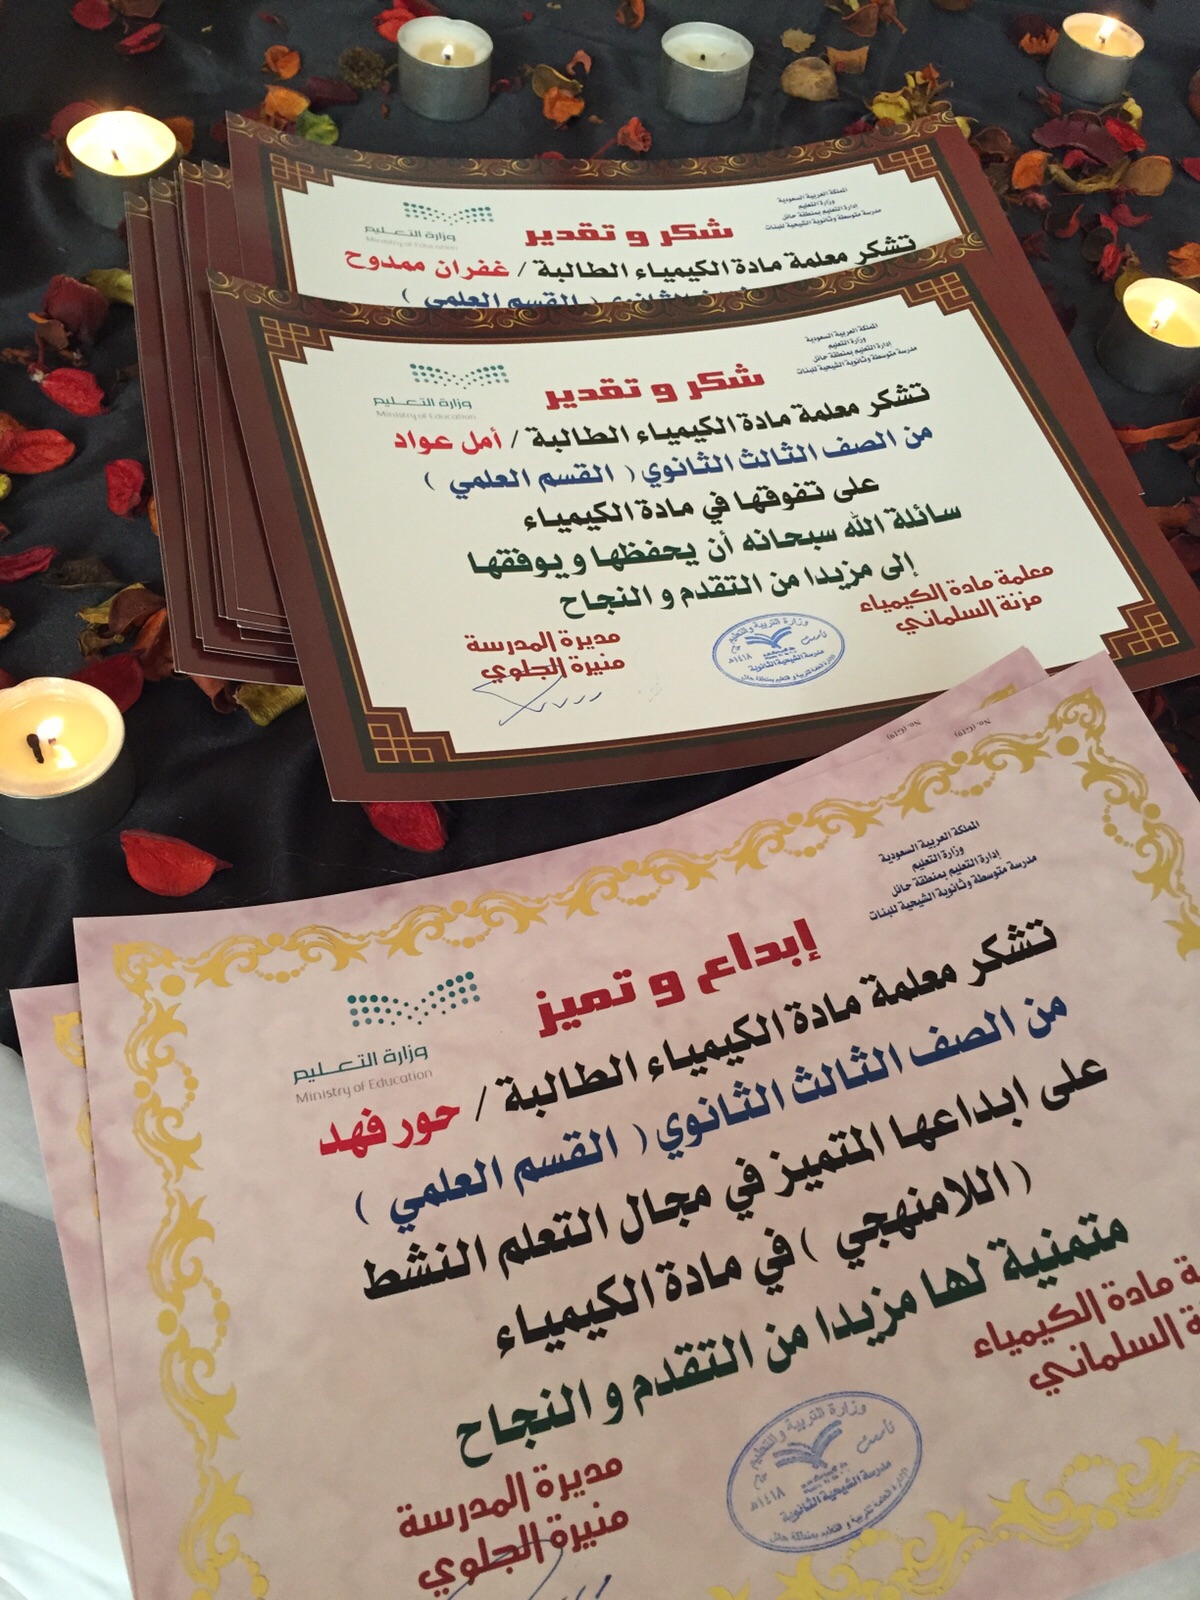 المملكة العربية السعودية
وزارة التعليم
إدارة التعليم بمنطقة حائل
مدرسة متوسطة وثانوية الشيحية للبنات
وزارة التعليم
Ministry of Education
شكر و تقدير
تشكر معلمة مادة الكيمياء الطالبة / غفران ممدوح
( القسم العلمي )
المملكة العربية السعودية
وزارة التعليم
إدارة التعليم بمنطقة حائل
مدرسة متوسطة وثانوية الشيحية للبنات
وزارة التعليم
Ministry of Education
شكر و تقدير
تشكر معلمة مادة الكيمياء الطالبة / أمل عواد
من الصف الثالث الثانوي ( القسم العلمي )
على تفوقها في مادة الكيمياء
سائلة الله سبحانه أن يحفظها و يوفقها
إلى مزيدا من التقدم و النجاح
معلمة مادة الكيمياء
مزنة السلماني
مديرة المدرسة
منيرة الجلوي
وزارة التربية والتعليم
تأسست
١٤١٨هـ
مدرسة الشيحية الثانوية
No. (G19)
No. (G19)
المملكة العربية السعودية
وزارة التعليم
إدارة التعليم بمنطقة حائل
مدرسة متوسطة وثانوية الشيحية للبنات
وزارة التعليم
Ministry of Education
إبداع و تميز
تشكر معلمة مادة الكيمياء الطالبة / حور فهد
من الصف الثالث الثانوي ( القسم العلمي )
على ابداعها المتميز في مجال التعلم النشط
( اللامنهجي ) في مادة الكيمياء
متمنية لها مزيدا من التقدم و النجاح
ة مادة الكيمياء
ة السلماني
مديرة المدرسة
منيرة الجلوي
وزارة التربية والتعليم
تأسست
١٤١٨هـ
مدرسة الشيحية الثانوية